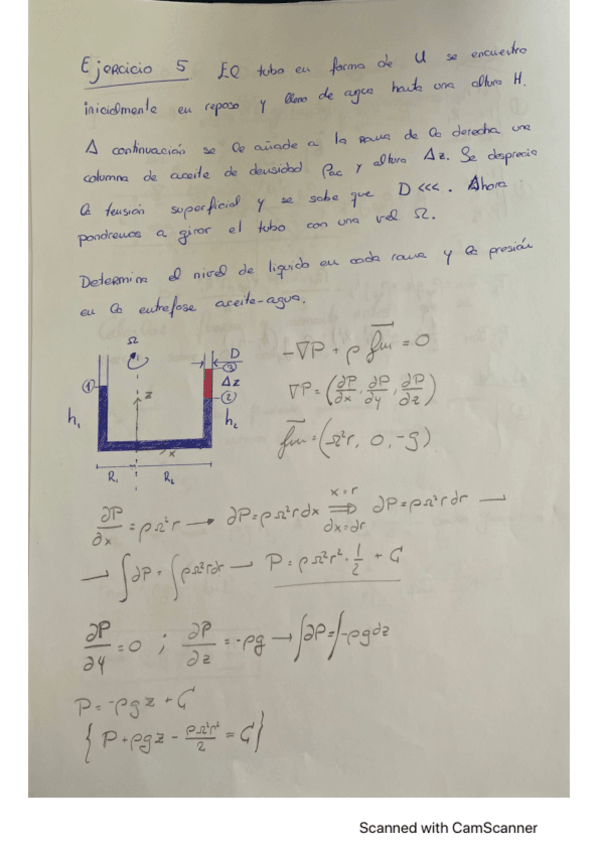 Ejercicio 5. El tubo en forma de U se encuentra
inicialmente en reposo y lleno de agua hasta una altura H.
A continuación se le añade a la rama de la derecha una
columna de aceite de densidad ρac y altura Δz. Se desprecia
la tensión superficial y se sabe que D <<<. Ahora
pondremos a girar el tubo con una vel Ω.
Determina el nivel de liquido en cada rama y la presión
en la entrefase aceite-agua.
Ω
D
① ③ Δz
z ②
h₁ h₂
x
R₁ R₂
-∇P + ρ fm = 0
∇P = (∂P/∂x, ∂P/∂y, ∂P/∂z)
fm = (Ω²r, 0, -g)
∂P/∂x = ρΩ²r → ∂P = ρΩ²r dx x=r ⇒ dx=dr ∂P = ρΩ²r dr →
→ ∫∂P = ∫ρΩ²r dr → P = ρΩ²r² · 1/2 + C₁
∂P/∂y = 0 ; ∂P/∂z = -ρg → ∫∂P = ∫-ρg dz
P = -ρgz + C₁
{ P + ρgz - ρΩ²r²/2 = C₁ }
Scanned with CamScanner